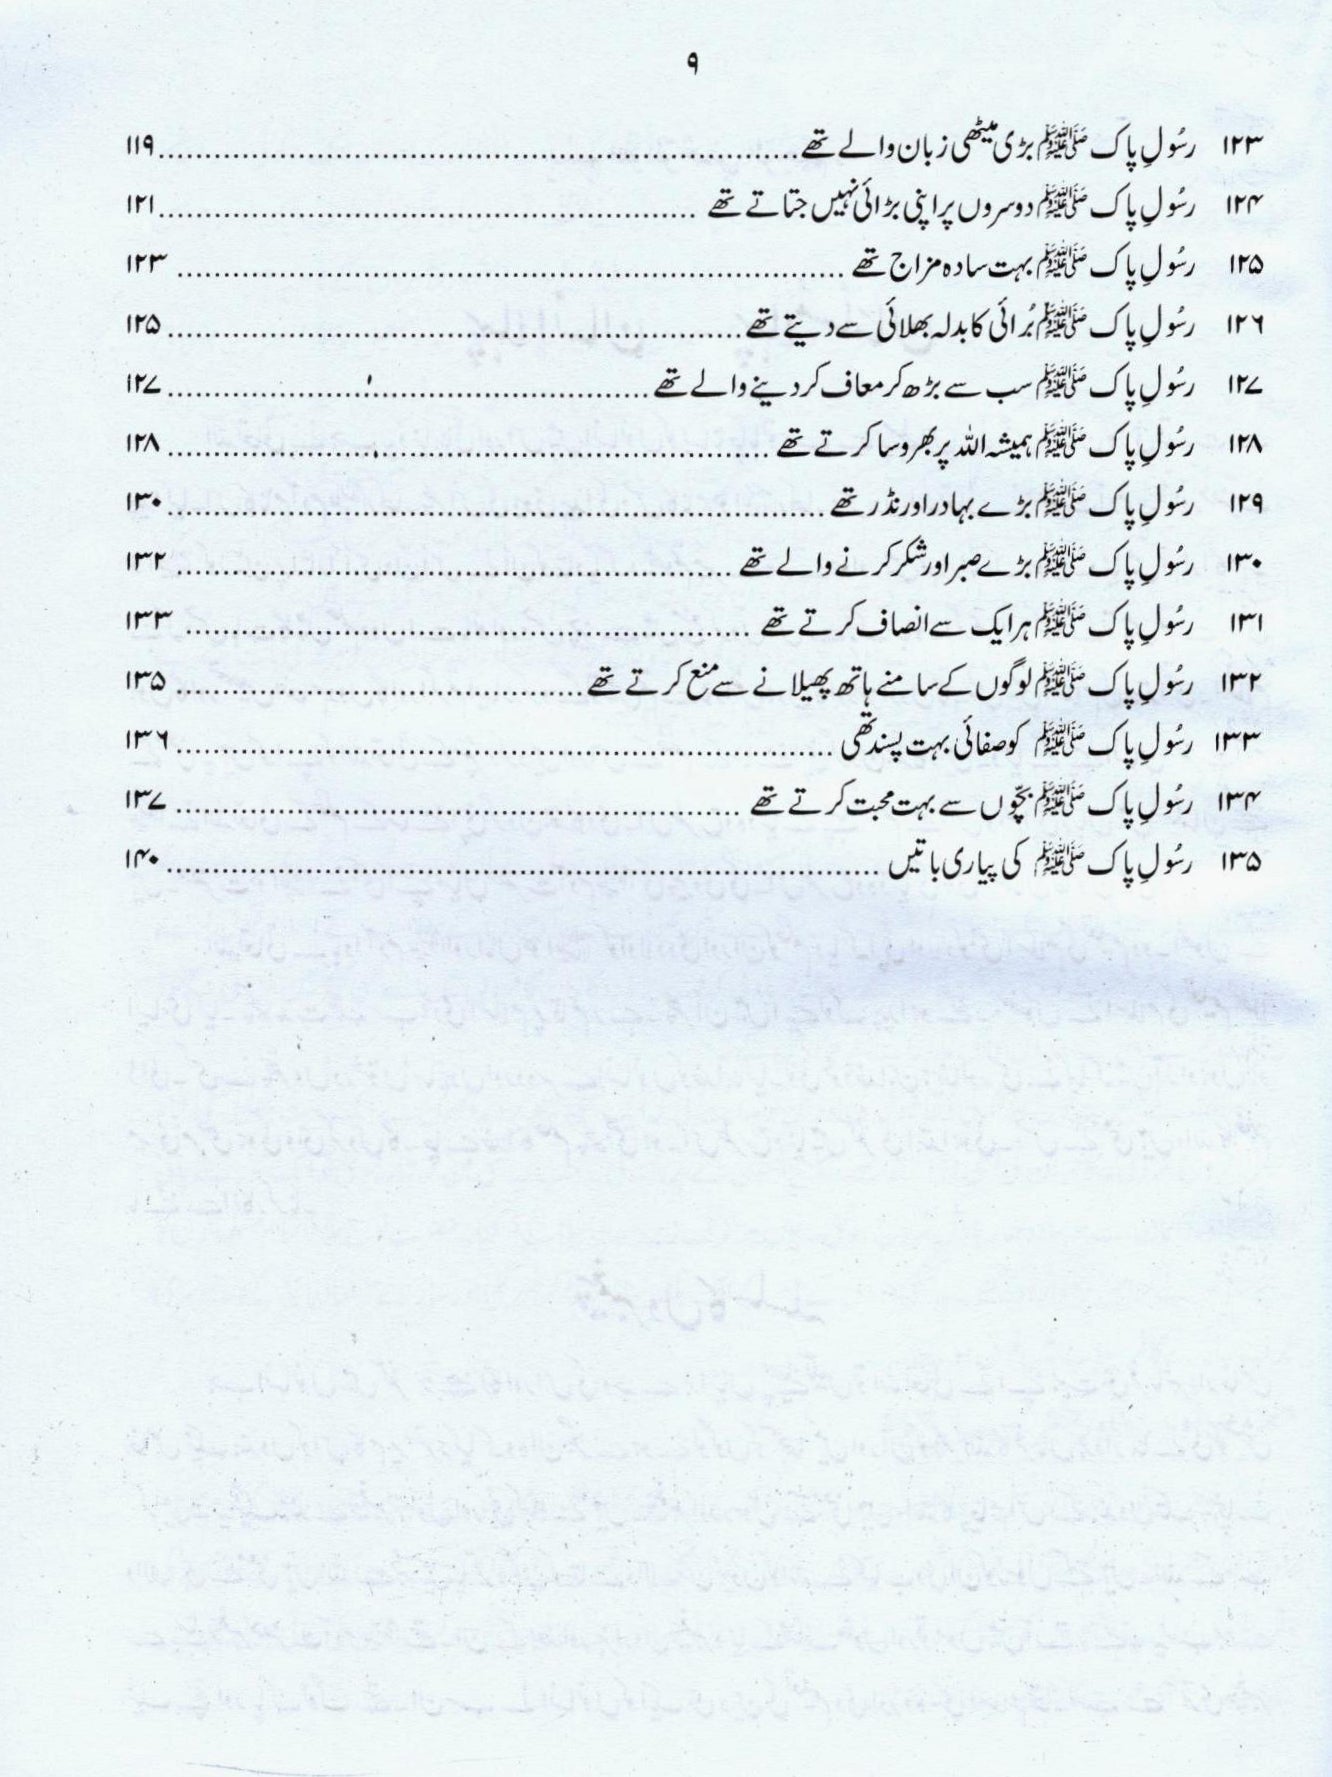 ۹
۱۲۳ رسُولِ پاک ﷺ بڑی میٹھی زبان والے تھے ........ ۱۱۹
۱۲۴ رسُولِ پاک ﷺ دوسروں پر اپنی بڑائی نہیں جتاتے تھے ........ ۱۲۱
۱۲۵ رسُولِ پاک ﷺ بہت سادہ مزاج تھے ........ ۱۲۳
۱۲۶ رسُولِ پاک ﷺ بُرائی کا بدلہ بھلائی سے دیتے تھے ........ ۱۲۵
۱۲۷ رسُولِ پاک ﷺ سب سے بڑھ کر معاف کر دینے والے تھے ........ ۱۲۷
۱۲۸ رسُولِ پاک ﷺ ہمیشہ اللہ پر بھروسا کرتے تھے ........ ۱۲۸
۱۲۹ رسُولِ پاک ﷺ بڑے بہادر اور نڈر تھے ........ ۱۳۰
۱۳۰ رسُولِ پاک ﷺ بڑے صبر اور شکر کرنے والے تھے ........ ۱۳۲
۱۳۱ رسُولِ پاک ﷺ ہر ایک سے انصاف کرتے تھے ........ ۱۳۳
۱۳۲ رسُولِ پاک ﷺ لوگوں کے سامنے ہاتھ پھیلانے سے منع کرتے تھے ........ ۱۳۵
۱۳۳ رسُولِ پاک ﷺ کو صفائی بہت پسند تھی ........ ۱۳۶
۱۳۴ رسُولِ پاک ﷺ بچّوں سے بہت محبت کرتے تھے ........ ۱۳۷
۱۳۵ رسُولِ پاک ﷺ کی پیاری باتیں ........ ۱۴۰